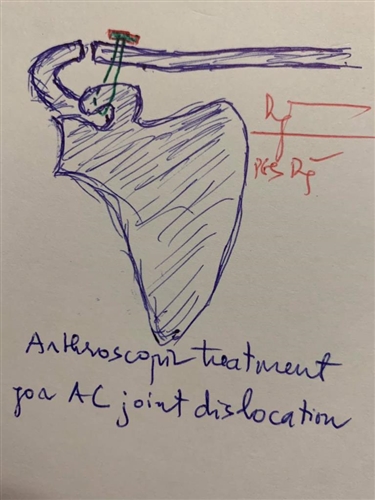 Arthroscopic treatment
for AC joint dislocation